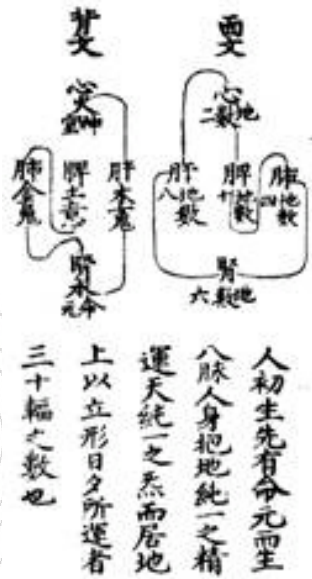 面文
心地
二數
肺地
四數
脾地
十數
肝地
八數
腎地
六數
背文
心火
神
肝木
魂
脾土
意
肺金
魄
腎水
元命
人初生先有命元而生
八脉人身抱地純一之精
運天純一之炁而居地
上以立形日夕所運者
三十輻之數也